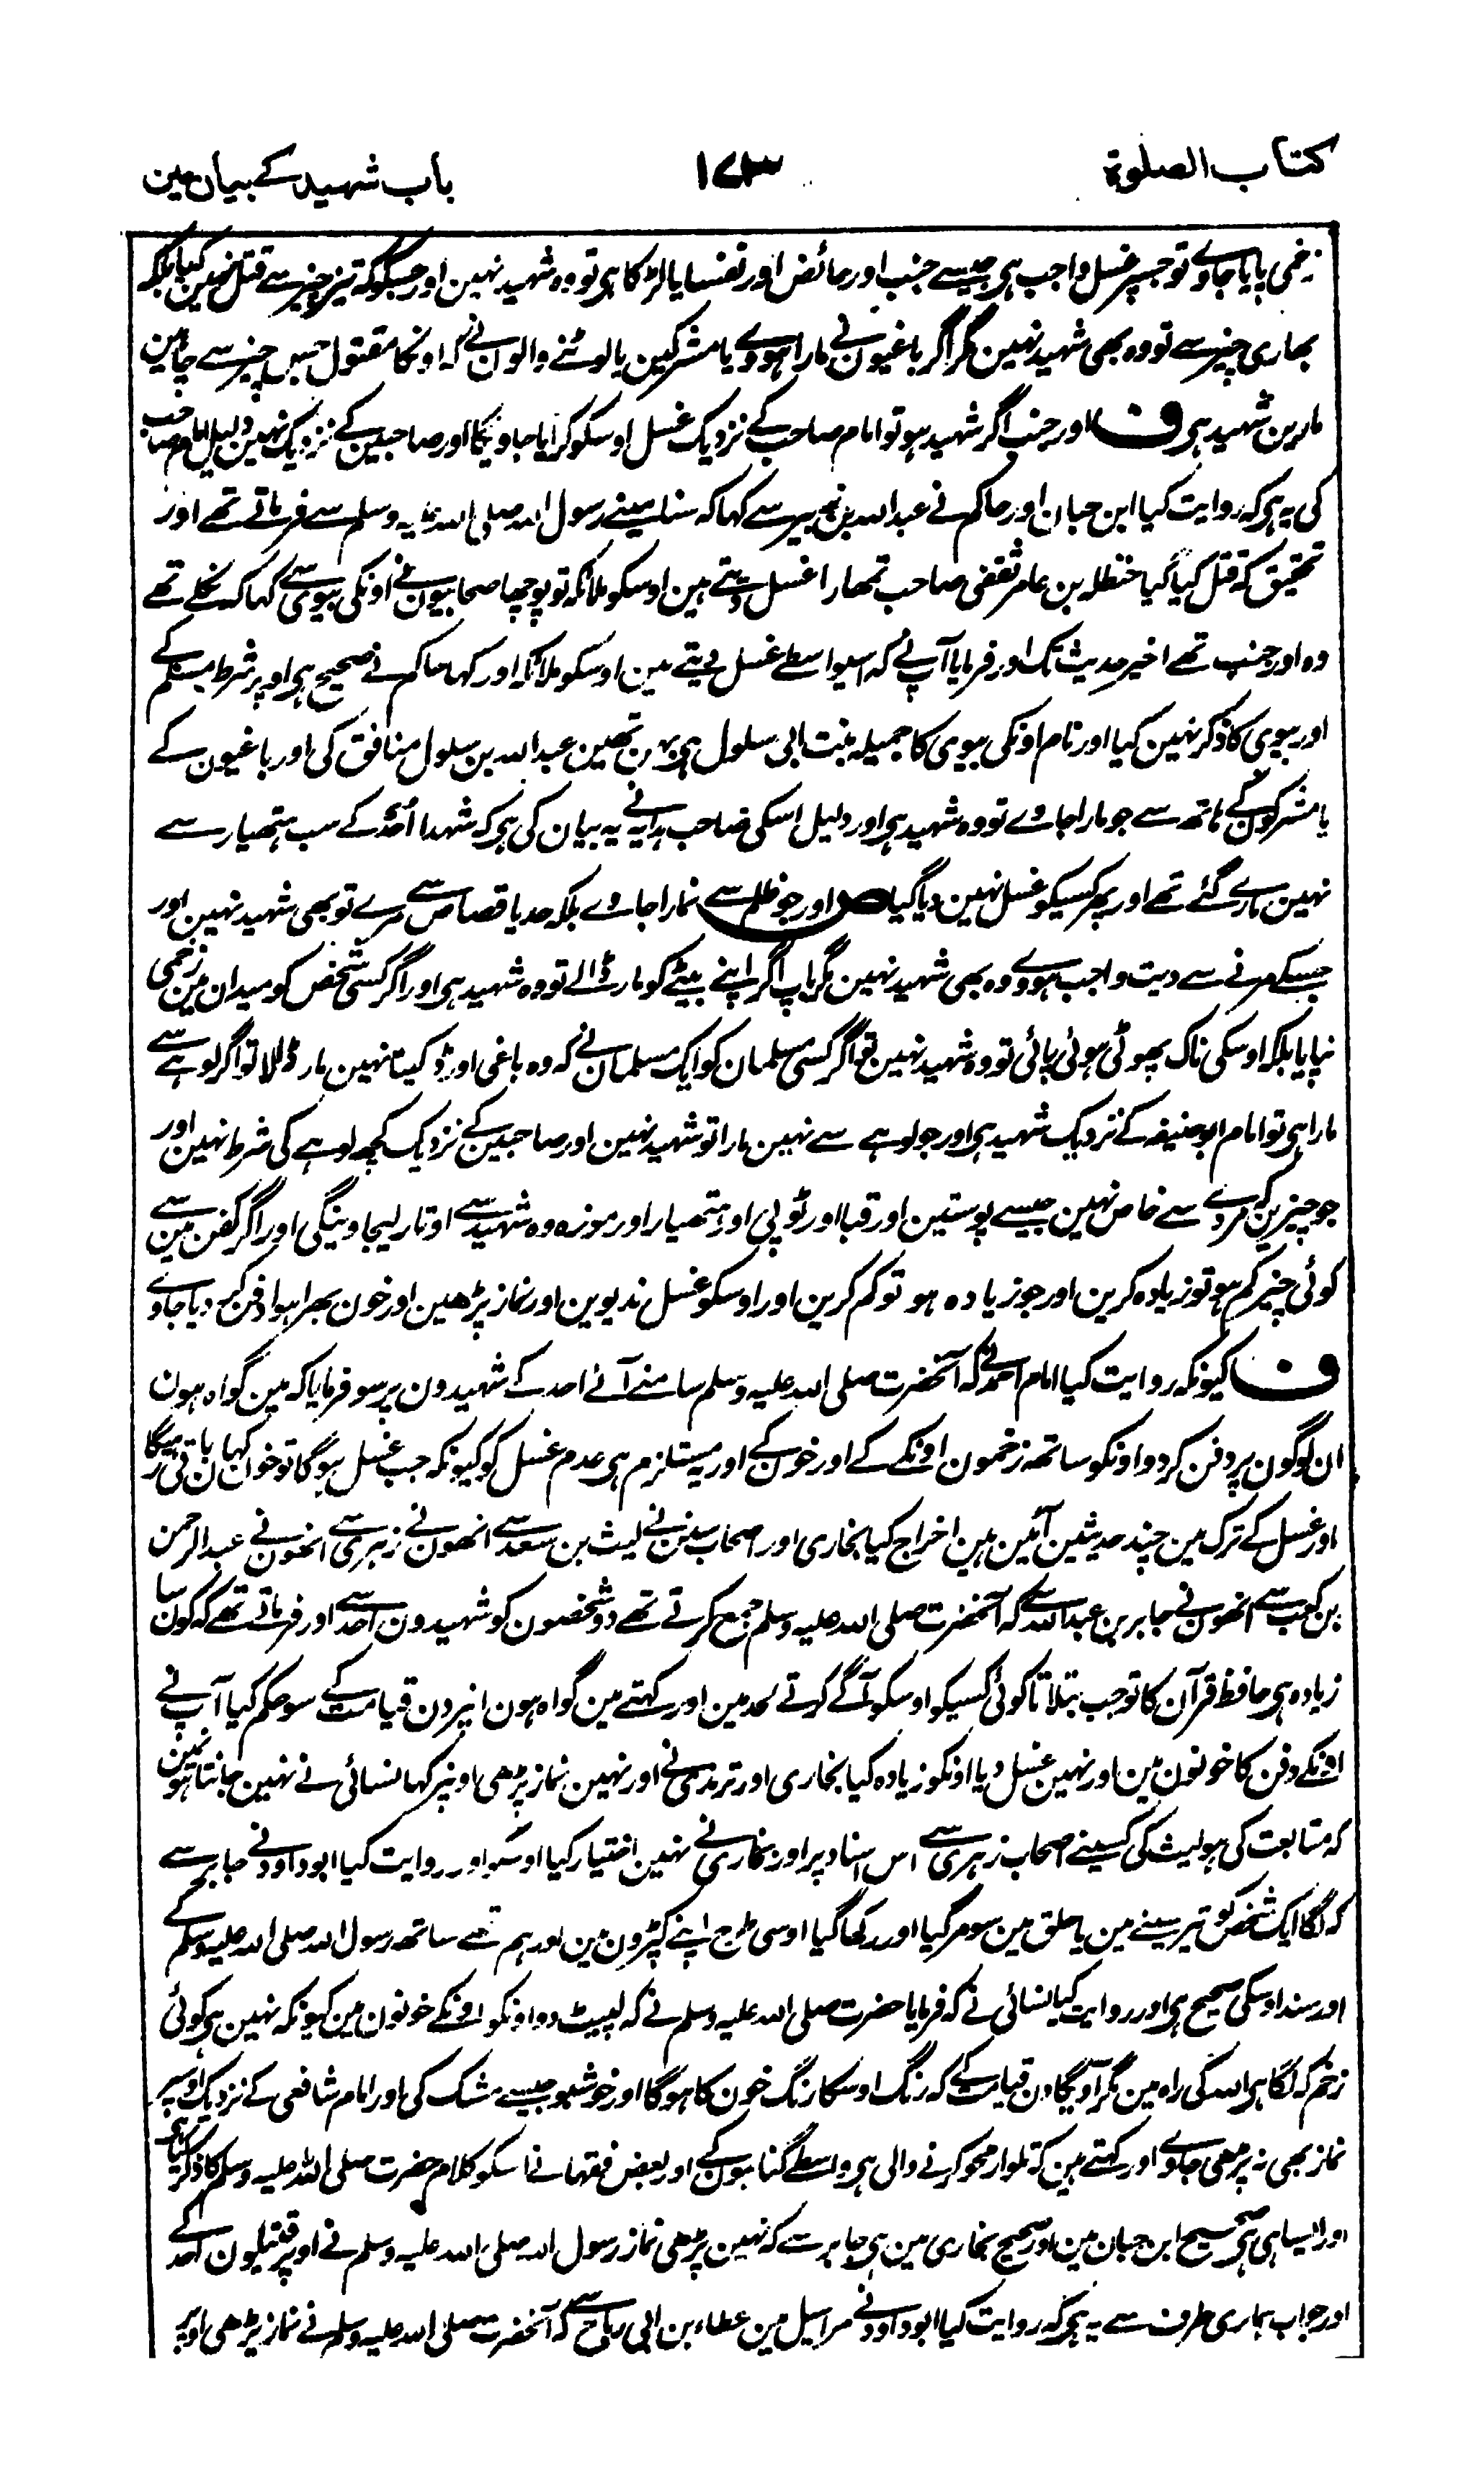 کتاب الصلوۃ
۱۷۳
باب شہید کے بیان مین
زخمی پایا جاوے تو جسپر غسل واجب ہی جیسے جنب اور حائض اور نفسا یا لڑکا ہی تو وہ شہید نہین اور جسکو کہ تیز چیز سے قتل نہین کیا بلکہ
بھاری چیز سے تو وہ بھی شہید نہین مگر اگر باغیون نے مارا ہووے یا مشرکین یا لوٹنے والون نے کہ اونکا مقتول جس چیز سے چاہین
مارین شہید ہی ف اور جنب اگر شہید ہو تو امام صاحب کے نزدیک غسل اوسکو کرایا جاویگا اور صاحبین کے نزدیک نہین دلیل امام صاحب
کی یہ ہی کہ روایت کیا ابن حبان اور حاکم نے عبد اللہ بن زبیر سے کہا کہ سنا مینے رسول اللہ صلی اللہ علیہ وسلم سے فرماتے تھے اور
تحقیق کہ قتل کیا گیا حنظلہ بن عامر ثقفی صاحب تمھارا غسل دیتے ہین اوسکو ملائکہ تو پوچھا صحابیون نے اونکی بیوی سے کہا کہ نکلے تھے
وہ اور جنب تھے اخیر حدیث تک اور فرمایا آپ نے کہ اسیواسطے غسل دیتے ہین اوسکو ملائکہ اور کہا حاکم نے صحیح ہی اوپر شرط مسلم کے
اور بیوی کا ذکر نہین کیا اور نام اونکی بیوی کا جمیلہ بنت ابی سلول ہی بہن تھین عبد اللہ بن سلول منافق کی اور باغیون کے
یا مشرکون کے ہاتھ سے جو مارا جاوے تو وہ شہید ہی اور دلیل اسکی صاحب ہدایہ نے یہ بیان کی ہی کہ شہدا اُحد کے سب ہتھیار سے
نہین مارے گئے تھے اور پھر کسیکو غسل نہین دیا گیا ص اور جو ظلم سے نمارا جاوے بلکہ حد یا قصاص سے مرے تو بھی شہید نہین اور
جسکے مرنے سے دیت واجب ہووے وہ بھی شہید نہین مگر باپ اگر اپنے بیٹے کو مار ڈالے تو وہ شہید ہی اور اگر کسی شخص کو میدان مین زخمی
نپایا بلکہ اوسکی ناک پھوٹی ہوئی پائی تو وہ شہید نہین تو اگر کسی مسلمان کو ایک مسلمان نے کہ وہ باغی اور ڈکیت نہین مار ڈالا تو اگر لوہے سے
مارا ہی تو امام ابو حنیفہ کے نزدیک شہید ہی اور جو لوہے سے نہین مارا تو شہید نہین اور صاحبین کے نزدیک کچھ لوہے کی شرط نہین اور
جو چیزین کہ مردے سے خاص نہین جیسے پوستین اور قبا اور ٹوپی اور ہتھیار اور موزہ وہ شہید سے اوتار لیجاوینگی اور اگر کفن مین سے
کوئی چیز کم ہو تو زیادہ کرین اور جو زیادہ ہو تو کم کرین اور اوسکو غسل ندیوین اور نماز پڑھین اور خون بھرا ہوا دفن کر دیا جاوے
ف کیونکہ روایت کیا امام احمد نے کہ آنحضرت صلی اللہ علیہ وسلم سامنے آئے احد کے شہیدون پر سو فرمایا کہ مین گواہ ہون
ان لوگون پر دفن کر دو اونکو ساتھ زخمون اونکے کے اور خون کے اور یہ مستلزم ہی عدم غسل کو کیونکہ جب غسل ہوگا تو خون کہان باقی رہیگا
اور غسل کے ترک مین چند حدیثین آئین ہین اخراج کیا بخاری اور اصحاب سنن نے لیث بن سعد سے انھون نے زہری سے انھون نے عبد الرحمن
بن کعب سے انھون نے جابر بن عبد اللہ سے کہ آنحضرت صلی اللہ علیہ وسلم جمع کرتے تھے دو شخصون کو شہیدون احد سے اور فرماتے تھے کہ کون سا
زیادہ ہی حافظ قرآن کا تو جب بتلاتا کوئی کسیکو اوسکو آگے کرتے لحد مین اور کہتے مین گواہ ہون انپر دن قیامت کے سو حکم کیا آپ نے
اونکے دفن کا خونون مین اور نہین غسل دیا اونکو زیادہ کیا بخاری اور ترمذی نے اور نہین نماز پڑھی اونپر کہا نسائی نے نہین جانتا ہون مین
کہ متابعت کی ہو لیث کی کسینے اصحاب زہری سے اس اسناد پر اور بخاری نے نہین اختیار کیا اوسکو اور روایت کیا ابو داود نے جابر سے
کہ لگا ایک شخص کو تیر سینے مین یا حلق مین سو مر گیا اور رکھا گیا اوسی طرح اپنے کپڑون مین اور ہم تھے ساتھ رسول اللہ صلی اللہ علیہ وسلم کے
اور سند اوسکی صحیح ہی اور روایت کیا نسائی نے کہ فرمایا حضرت صلی اللہ علیہ وسلم نے کہ لپیٹ دو اونکو اونکے خونون مین کیونکہ نہین ہی کوئی
زخم کہ لگا ہی اللہ کی راہ مین مگر آویگا دن قیامت کے کہ رنگ اوسکا رنگ خون کا ہوگا اور خوشبو جیسے مشک کی اور امام شافعی کے نزدیک اوسپر
نماز بھی نہ پڑھی جاوے اور کہتے ہین کہ تلوار محو کرنے والی ہی واسطے گناہون کے اور بعض فقہا نے اسکو کلام حضرت صلی اللہ علیہ وسلم کا ذکر کیا ہی
اور ایسا ہی ہی صحیح ابن حبان مین اور صحیح بخاری مین ہی جابر سے کہ نہین پڑھی نماز رسول اللہ صلی اللہ علیہ وسلم نے اوپر قتیلون احد کے
اور جواب ہماری طرف سے یہ ہی کہ روایت کیا ابو داود نے مراسیل مین عطاء بن ابی رباح سے کہ آنحضرت صلی اللہ علیہ وسلم نے نماز پڑھی اوپر